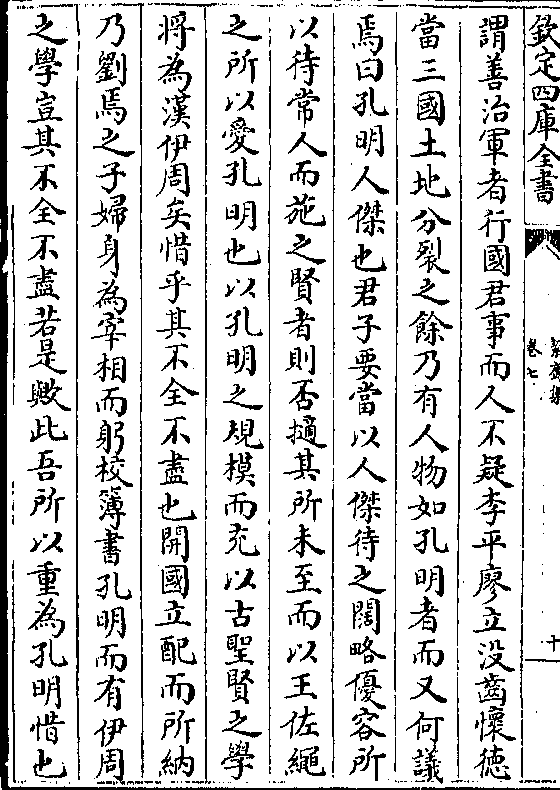 欽定四庫全書
卷七
十
謂善治軍者行國君事而人不疑李平廖立没齒懷德
當三國土地分裂之餘乃有人物如孔明者而又何議
焉曰孔明人傑也君子要當以人傑待之闊略優容所
以待常人而施之賢者則否擿其所未至而以王佐繩
之所以愛孔明也以孔明之規模而充以古聖賢之學
將為漢伊周矣惜乎其不全不盡也開國立配而所納
乃劉焉之子婦身為宰相而躬校簿書孔明而有伊周
之學豈其不全不盡若是歟此吾所以重為孔明惜也